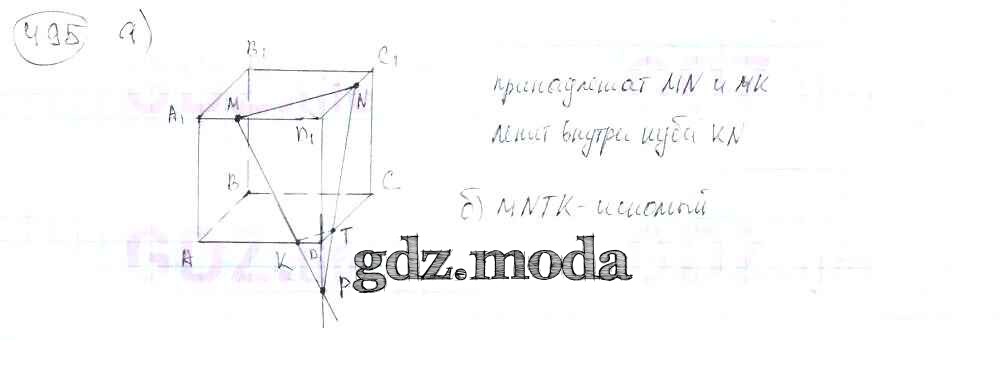 495 а)
B₁
C₁
A₁ M D₁ N
B C
A K D T
P
принадлежат MN и MK
лежит внутри куба KN
б) MNTK - искомый
gdz.moda